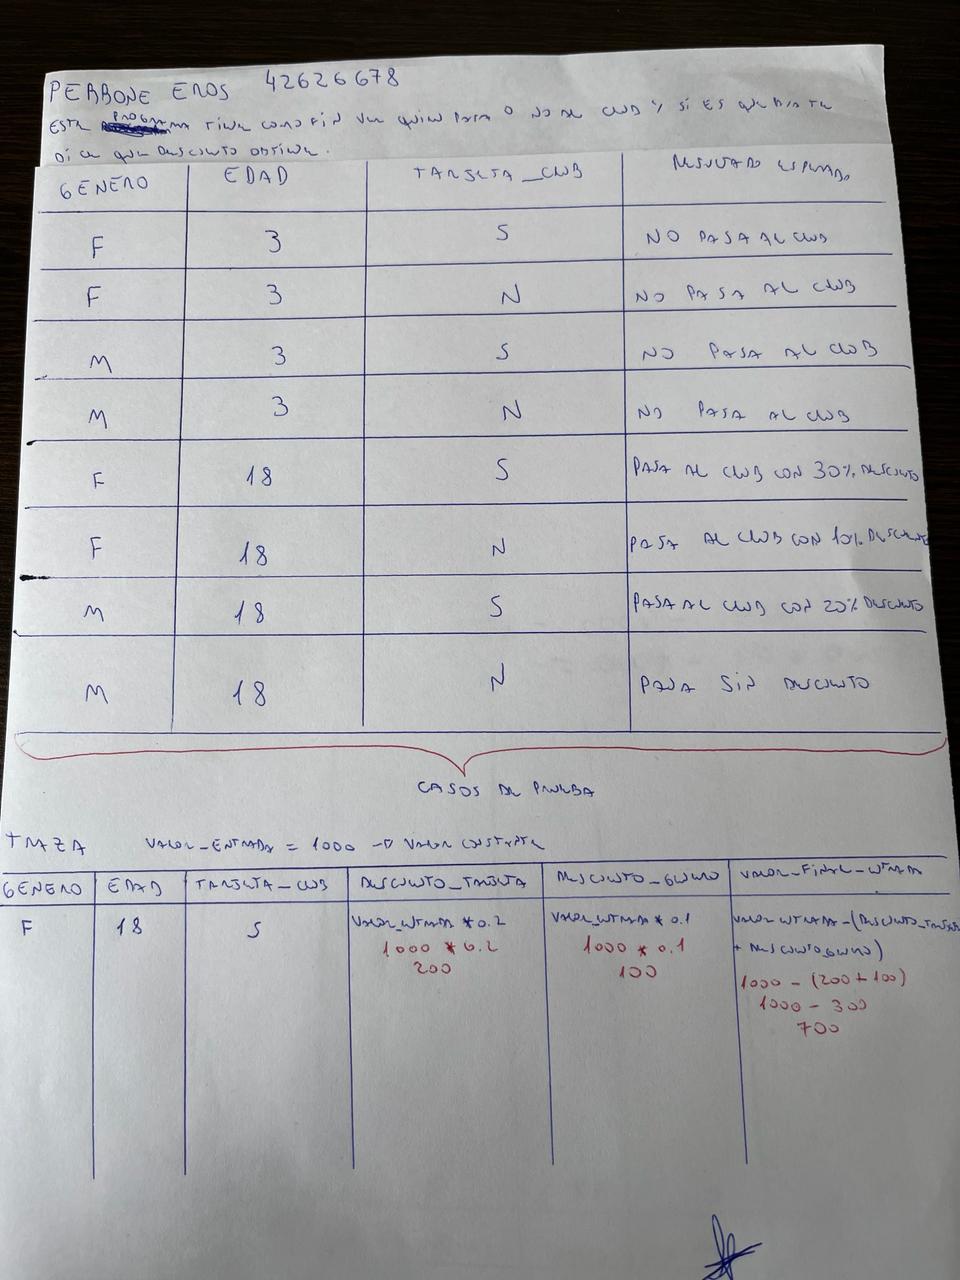 PERRONE EROS 42626678
ESTE PROGRAMA TIENE COMO FIN VER QUIEN PASA O NO AL CLUB Y SI ES QUE PASA TE
DICE QUE DESCUENTO OBTIENE.
GENERO EDAD TARJETA_CLUB RESULTADO ESPERADO
F 3 S NO PASA AL CLUB
F 3 N NO PASA AL CLUB
M 3 S NO PASA AL CLUB
M 3 N NO PASA AL CLUB
F 18 S PASA AL CLUB CON 30% DESCUENTO
F 18 N PASA AL CLUB CON 10% DESCUENTO
M 18 S PASA AL CLUB CON 20% DESCUENTO
M 18 N PASA SIN DESCUENTO
CASOS DE PRUEBA
TRAZA VALOR_ENTRADA = 1000 → VALOR CONSTANTE
GENERO EDAD TARJETA_CLUB DESCUENTO_TARJETA DESCUENTO_GENERO VALOR_FINAL_ENTRADA
F 18 S VALOR_ENTRADA * 0.2 VALOR_ENTRADA * 0.1 VALOR ENTRADA - (DESCUENTO_TARJETA
+ DESCUENTO_GENERO)
1000 * 0.2 1000 * 0.1 1000 - (200 + 100)
200 100 1000 - 300
700